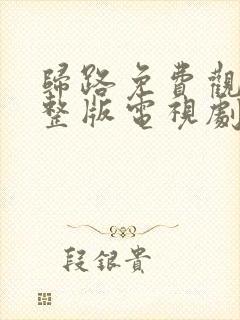 歸路免費觀
整版電視劇
段銀貴